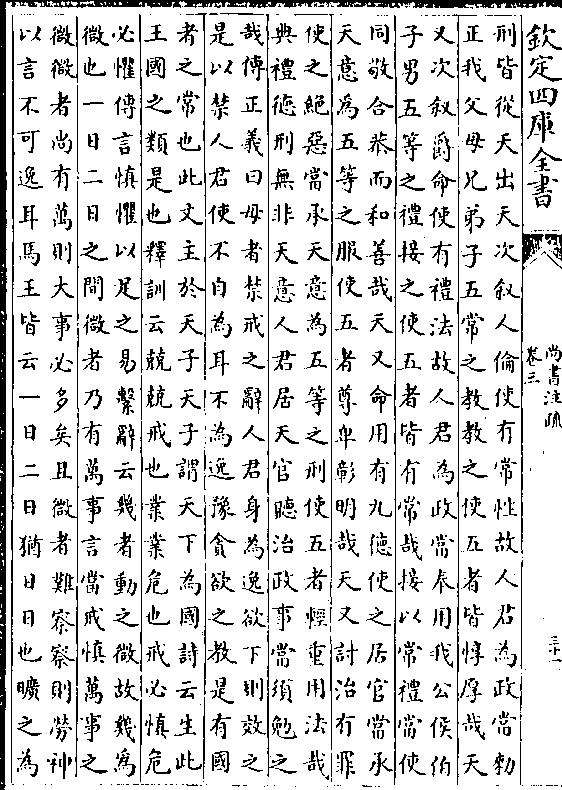 欽定四庫全書
尚書注疏
卷三
三十一
刑皆從天出天次叙人倫使有常性故人君為政當勑
正我父母兄弟子五常之教教之使五者皆惇厚哉天
又次叙爵命使有禮法故人君為政當奉用我公侯伯
子男五等之禮接之使五者皆有常哉接以常禮當使
同敬合恭而和善哉天又命用有九徳使之居官當承
天意為五等之服使五者尊卑彰明哉天又討治有罪
使之絶惡當承天意為五等之刑使五者輕重用法哉
典禮徳刑無非天意人君居天官聽治政事當須勉之
哉傳正義曰毋者禁戒之辭人君身為逸欲下則效之
是以禁人君使不自為耳不為逸豫貪欲之教是有國
者之常也此文主於天子天子謂天下為國詩云生此
王國之類是也釋訓云兢兢戒也業業危也戒必慎危
必懼傳言慎懼以足之易繫辭云幾者動之微故幾為
微也一日二日之間微者乃有萬事言當戒慎萬事之
微微者尚有萬則大事必多矣且微者難察察則勞神
以言不可逸耳馬王皆云一日二日猶日日也曠之為